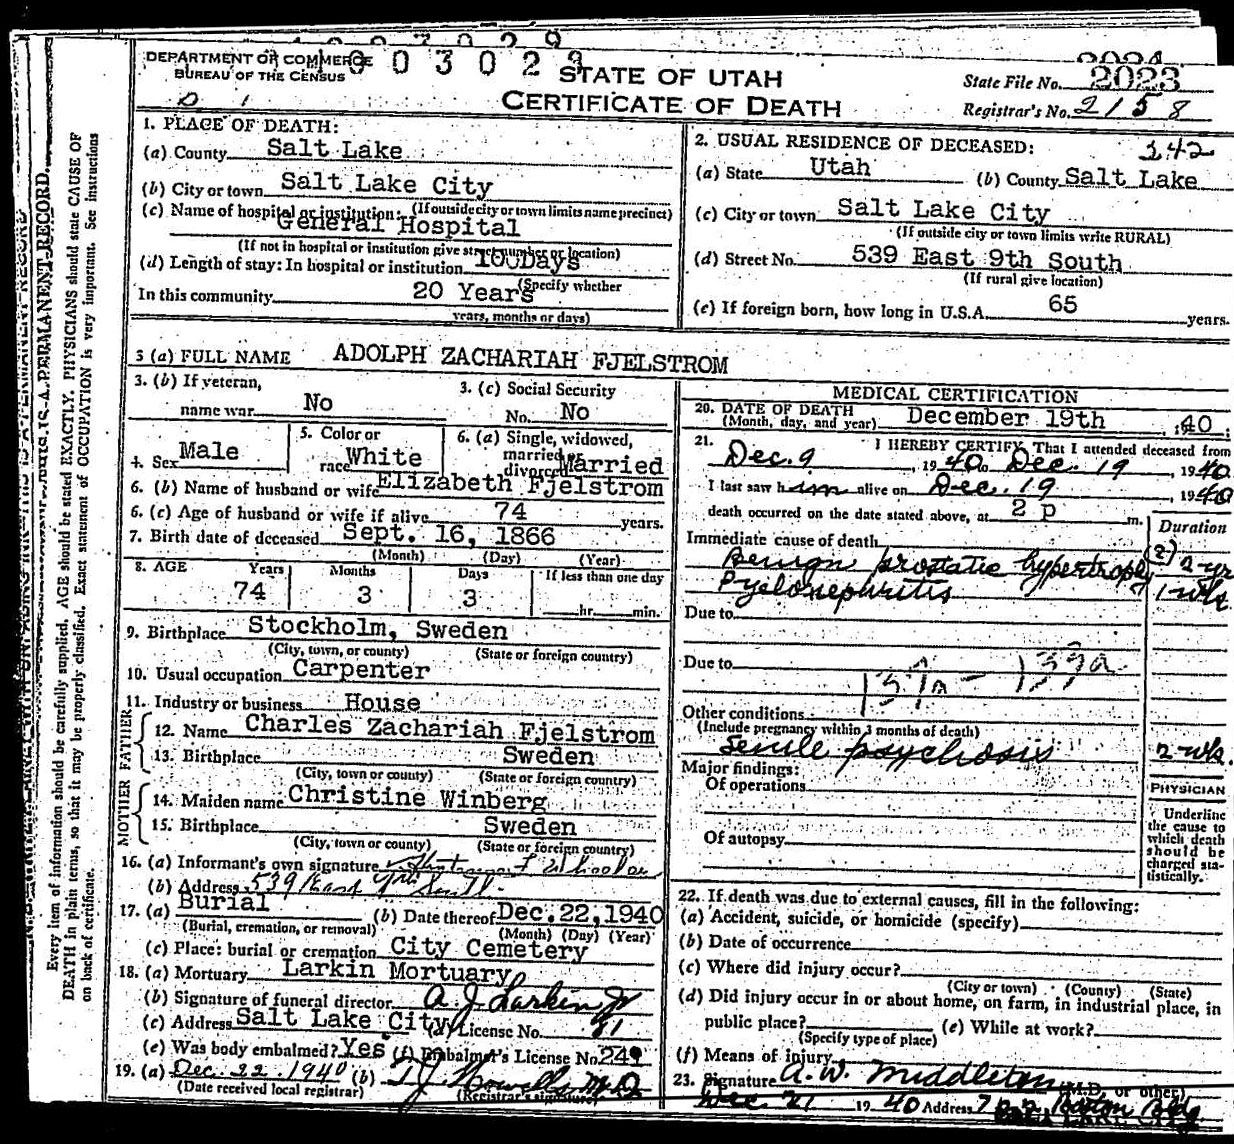 DEPARTMENT OF COMMERCE
BUREAU OF THE CENSUS
003029
STATE OF UTAH
CERTIFICATE OF DEATH
State File No. 2023
Registrar's No. 2158
1. PLACE OF DEATH:
(a) County Salt Lake
(b) City or town Salt Lake City
(If outside city or town limits name precinct)
(c) Name of hospital or institution:
General Hospital
(If not in hospital or institution give street number or location)
(d) Length of stay: In hospital or institution 10 Days
(Specify whether
In this community 20 Years
years, months or days)
2. USUAL RESIDENCE OF DECEASED: 342
(a) State Utah (b) County Salt Lake
(c) City or town Salt Lake City
(If outside city or town limits write RURAL)
(d) Street No. 539 East 9th South
(If rural give location)
(e) If foreign born, how long in U.S.A. 65 years.
3 (a) FULL NAME ADOLPH ZACHARIAH FJELSTROM
3. (b) If veteran,
name war No
3. (c) Social Security
No. No
4. Sex Male
5. Color or
race White
6. (a) Single, widowed,
married or
divorced Married
6. (b) Name of husband or wife Elizabeth Fjelstrom
6. (c) Age of husband or wife if alive 74 years.
7. Birth date of deceased Sept. 16, 1866
(Month) (Day) (Year)
8. AGE Years Months Days If less than one day
74 3 3 hr. min.
9. Birthplace Stockholm, Sweden
(City, town, or county) (State or foreign country)
10. Usual occupation Carpenter
11. Industry or business House
FATHER
12. Name Charles Zachariah Fjelstrom
13. Birthplace Sweden
(City, town or county) (State or foreign country)
MOTHER
14. Maiden name Christine Winberg
15. Birthplace Sweden
(City, town or county) (State or foreign country)
16. (a) Informant's own signature
(b) Address 539 East 9th South
17. (a) Burial (b) Date thereof Dec. 22, 1940
(Burial, cremation, or removal) (Month) (Day) (Year)
(c) Place: burial or cremation City Cemetery
18. (a) Mortuary Larkin Mortuary
(b) Signature of funeral director A. J. Larkin Jr
(c) Address Salt Lake City (d) License No. 31
(e) Was body embalmed? Yes (f) Embalmer's License No. 249
19. (a) Dec. 22. 1940 (b) T. J. Howells M.D.
(Date received local registrar) (Registrar's signature)
MEDICAL CERTIFICATION
20. DATE OF DEATH
(Month, day, and year) December 19th, 1940
21. I HEREBY CERTIFY, That I attended deceased from
Dec. 9, 1940 to Dec. 19, 1940
I last saw him alive on Dec. 19, 1940
death occurred on the date stated above, at 2 p m.
Duration
Immediate cause of death
Benign prostatic hypertrophy (2) 2 yr
Pyelonephritis 1 wk
Due to
Due to 137a - 137a
Other conditions
(Include pregnancy within 3 months of death)
Senile psychosis 2 wk.
Major findings:
Of operations
Of autopsy
PHYSICIAN
Underline
the cause to
which death
should be
charged sta-
tistically.
22. If death was due to external causes, fill in the following:
(a) Accident, suicide, or homicide (specify)
(b) Date of occurrence
(c) Where did injury occur?
(City or town) (County) (State)
(d) Did injury occur in or about home, on farm, in industrial place, in
public place? (e) While at work?
(Specify type of place)
(f) Means of injury
23. Signature A. W. Middleton (M.D. or other)
Dec 21 1940 Address Boston Bldg
Every item of information should be carefully supplied. AGE should be stated EXACTLY. PHYSICIANS should state CAUSE OF
DEATH in plain terms, so that it may be properly classified. Exact statement of OCCUPATION is very important. See instructions
on back of certificate.